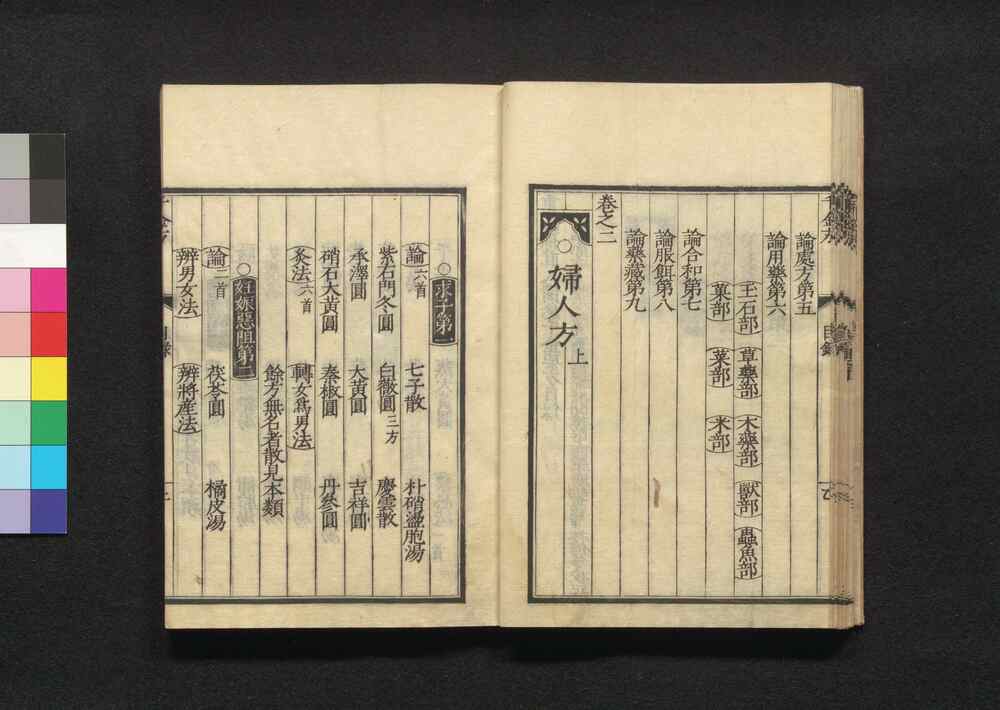 論處方第五
論用藥第六
玉石部 草藥部 木藥部 獸部 蟲魚部
菓部 菜部 米部
論合和第七
論服餌第八
論藥藏第九
卷之二
○婦人方上
○求子第一
論六首 七子散 朴硝盪胞湯
紫石門冬圓 白薇圓三方 慶雲散
承澤圓 大黃圓 吉祥圓
硝石大黃圓 秦椒圓 丹參圓
灸法六首 轉女爲男法
餘方無名者散見本類
○妊娠惡阻第二
論二首 茯苓圓 橘皮湯
辨男女法 辨將產法
目錄